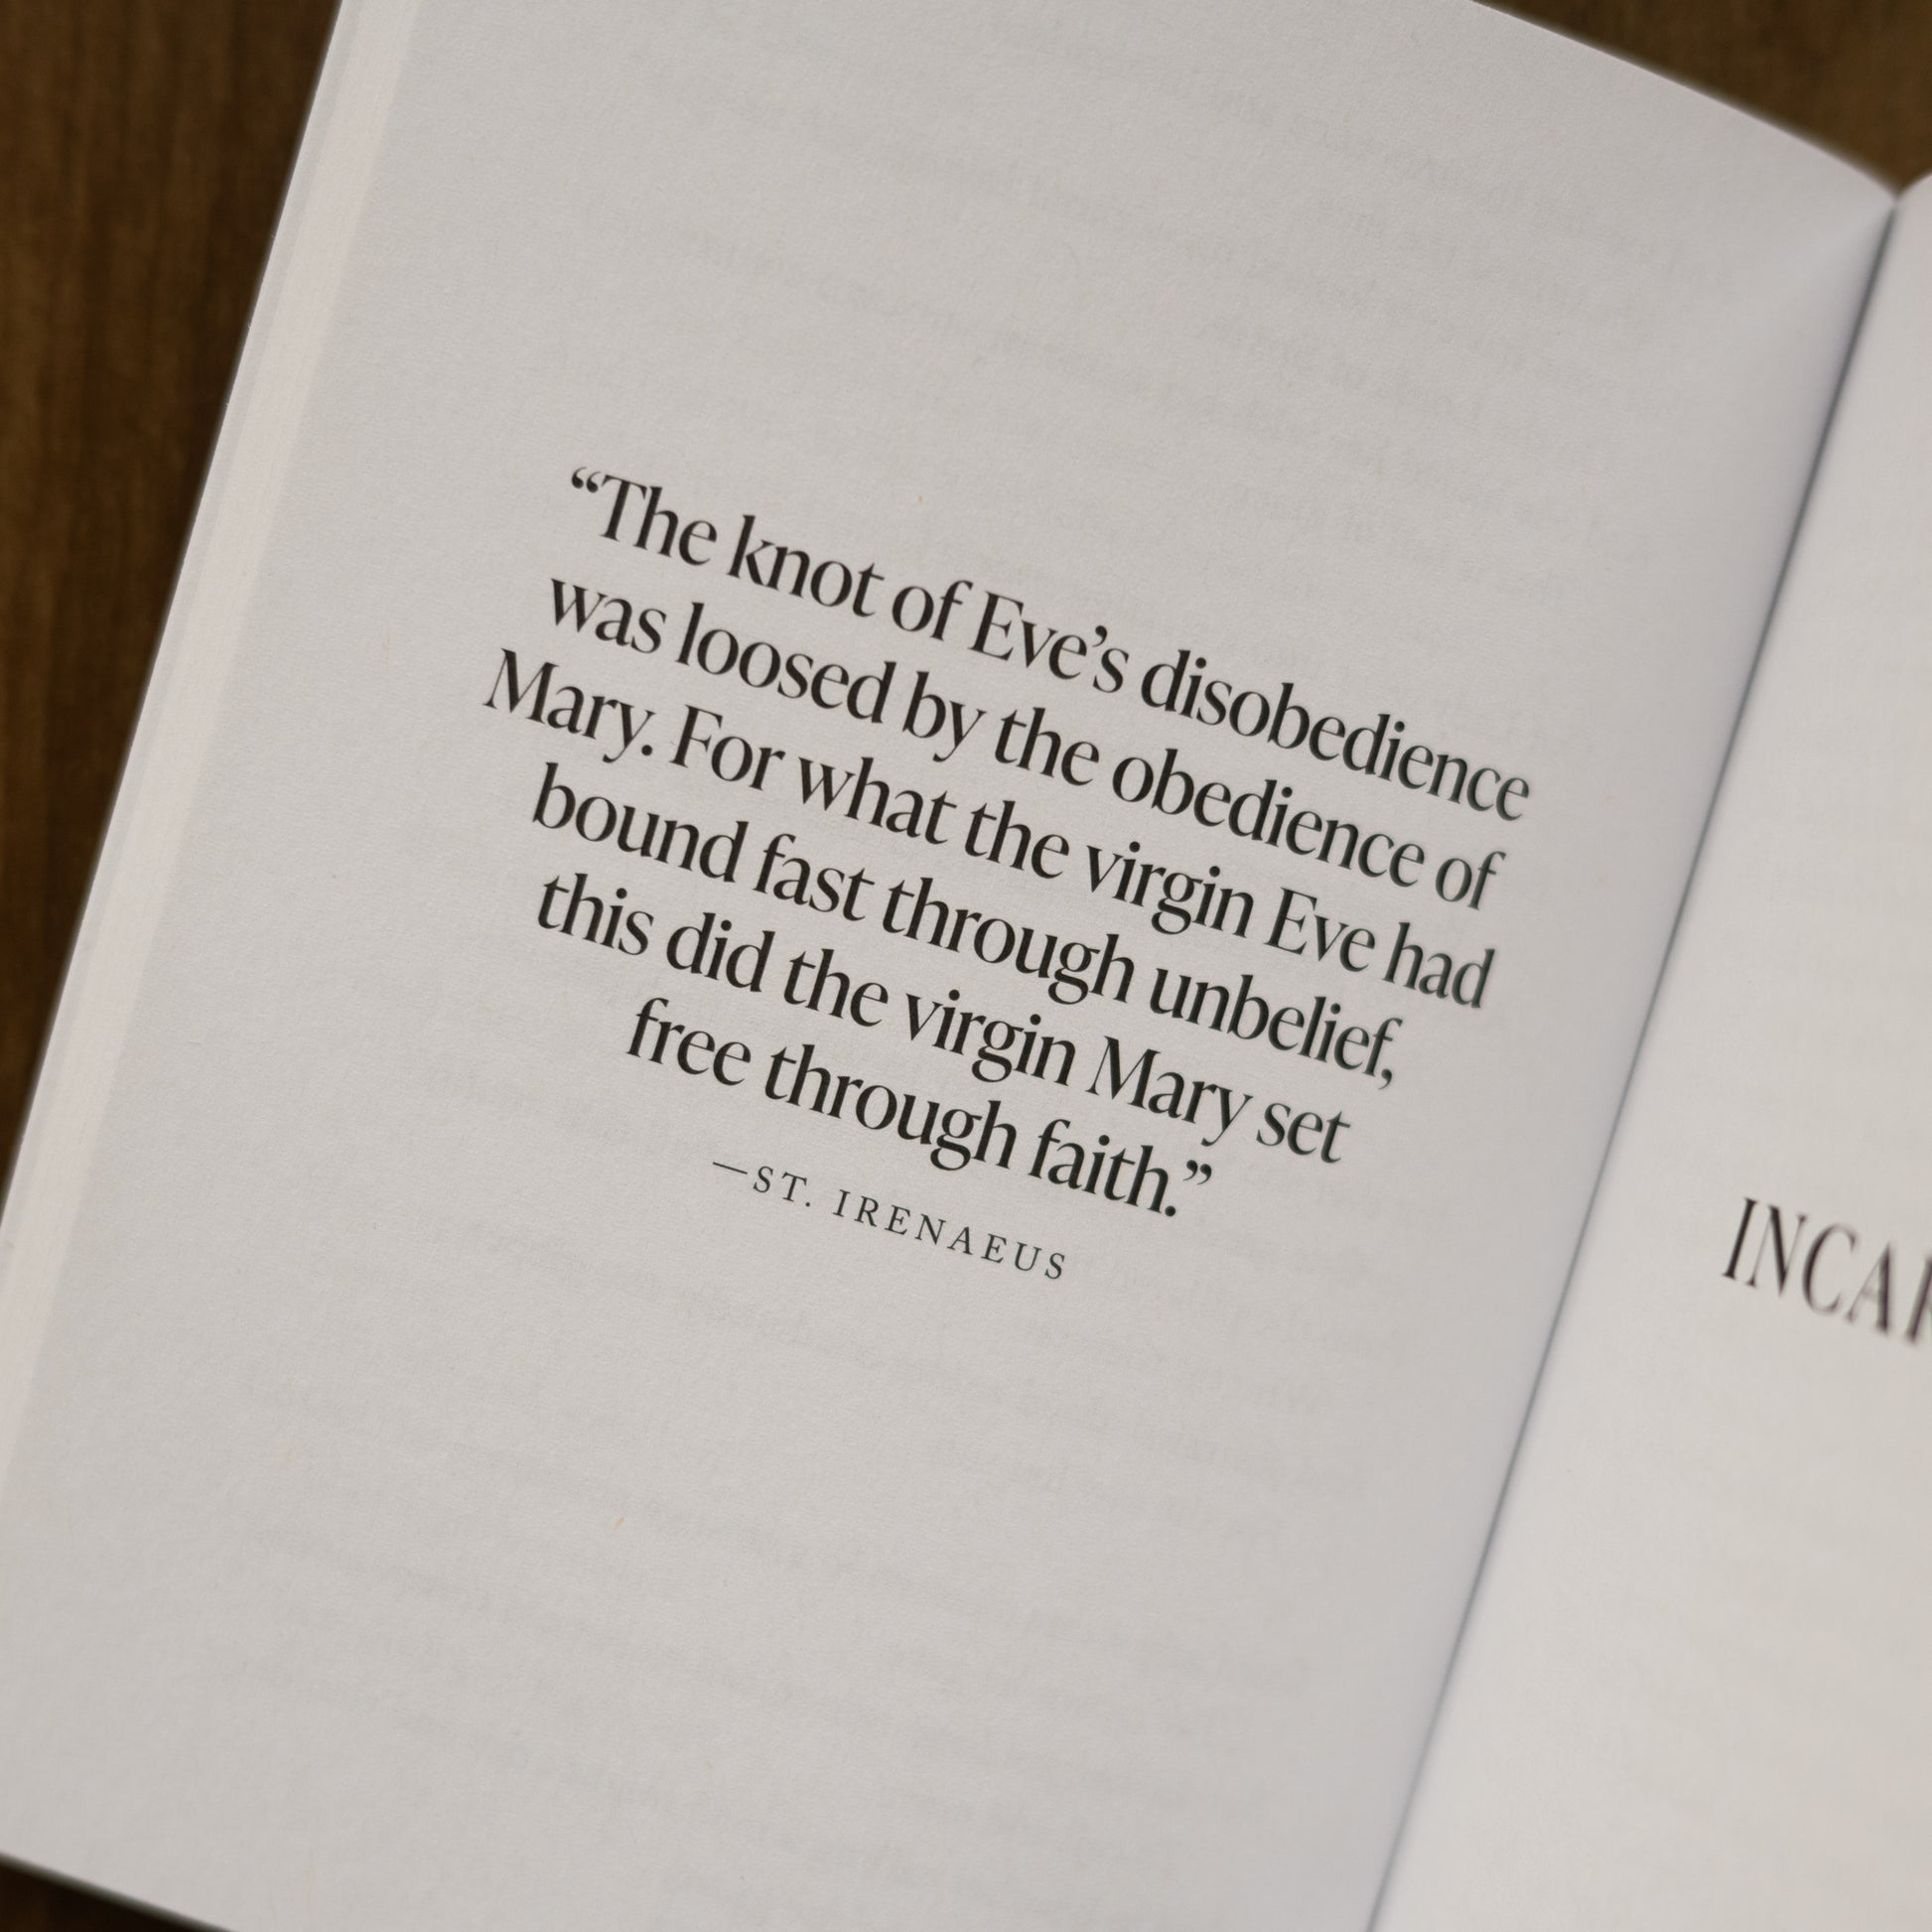 “The knot of Eve’s disobedience
was loosed by the obedience of
Mary. For what the virgin Eve had
bound fast through unbelief,
this did the virgin Mary set
free through faith.”
—ST. IRENAEUS